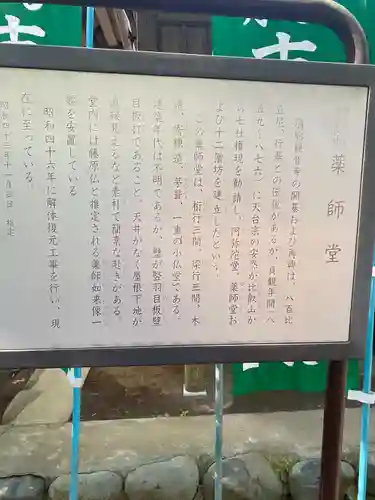 薬師堂
慈眼寺観音寺の開基および再興は、八百比
丘尼、行基との伝承があるが、貞観年間(八
五九~八七六)に天台宗の安然が比叡山か
ら七社権現を勧請し、阿弥陀堂、薬師堂お
よび十二僧坊を建立したという。
この薬師堂は、桁行三間、梁行三間、木
造、寄棟造、茅葺、一重の小仏堂である。
建築年代は不明であるが、壁が竪羽目板壁
目板打であること、天井がなく屋根下地が
直接見えるなど素朴で簡素な趣きがある。
堂内には藤原仏と推定される薬師如来像一
躯を安置している
昭和四十六年に解体復元工事を行い、現
在に至っている。
昭和四十三年十一月三日 指定